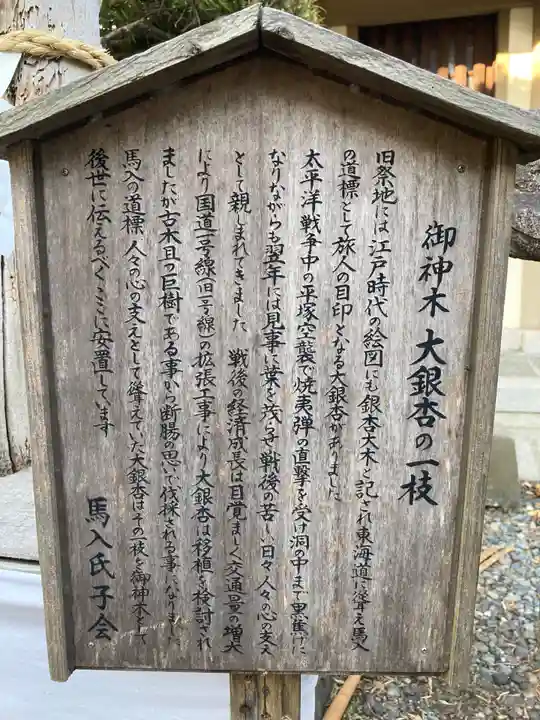 御神木 大銀杏の一枝
旧祭地には江戸時代の絵図にも銀杏大木と記され東海道に聳え馬入
の道標として旅人の目印となる大銀杏がありました
太平洋戦争中の平塚空襲で焼夷弾の直撃を受け洞の中まで黒焦げに
なりながらも翌年には見事に葉を茂らせ戦後の苦しい日々人々の心の支え
として親しまれてきました 戦後の経済成長は目覚ましく交通量の増大
により国道一号線(旧一号線)の拡張工事により大銀杏は移植も検討され
ましたが古木且つ巨樹である事から断腸の思いで伐採される事になりました
馬入の道標、人々の心の支えとして聳えていた大銀杏はその一枝を御神木として
後世に伝えるべくここに安置しています
馬入氏子会